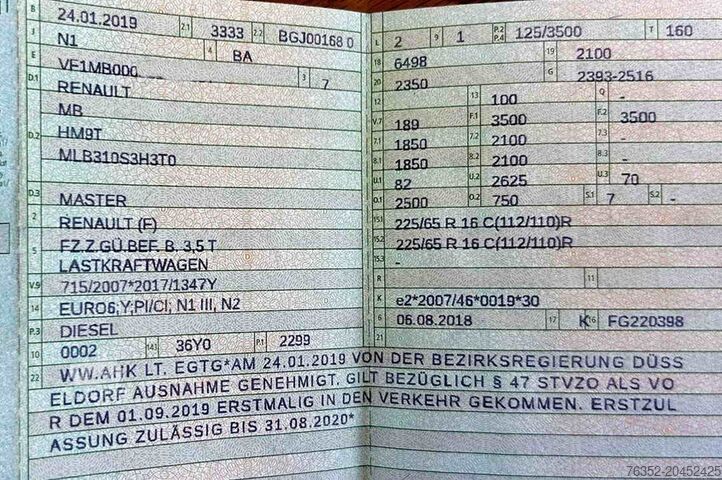 B 24.01.2019 2.1 3333 2.2 BGJ00168 0
J N1 4 BA
E VF1MB000 3 7
D.1 RENAULT
MB
D.2 HM9T
MLB310S3H3T0
D.3 MASTER
2 RENAULT (F)
5 FZ.Z.GÜ.BEF. B. 3,5 T
LASTKRAFTWAGEN
V.9 715/2007*2017/1347Y
14 EURO6;Y;PI/CI; N1 III, N2
P.3 DIESEL
10 0002 14.1 36Y0 P.1 2299
L 2 9 1 P.2 P.4 125/3500 T 160
18 6498 19 2100
20 2350 G 2393-2516
12 13 100 Q -
V.7 189 F.1 3500 F.2 3500
7.1 1850 7.2 2100 7.3 -
8.1 1850 8.2 2100 8.3 -
U.1 82 U.2 2625 U.3 70
O.1 2500 O.2 750 S.1 7 S.2 -
15.1 225/65 R 16 C(112/110)R
15.2 225/65 R 16 C(112/110)R
15.3 -
R 11
K e2*2007/46*0019*30
6 06.08.2018 17 K 16 FG220398
21
22 WW.AHK LT. EGTG*AM 24.01.2019 VON DER BEZIRKSREGIERUNG DÜSS
ELDORF AUSNAHME GENEHMIGT. GILT BEZÜGLICH § 47 STVZO ALS VO
R DEM 01.09.2019 ERSTMALIG IN DEN VERKEHR GEKOMMEN. ERSTZUL
ASSUNG ZULÄSSIG BIS 31.08.2020*
76352-20452425